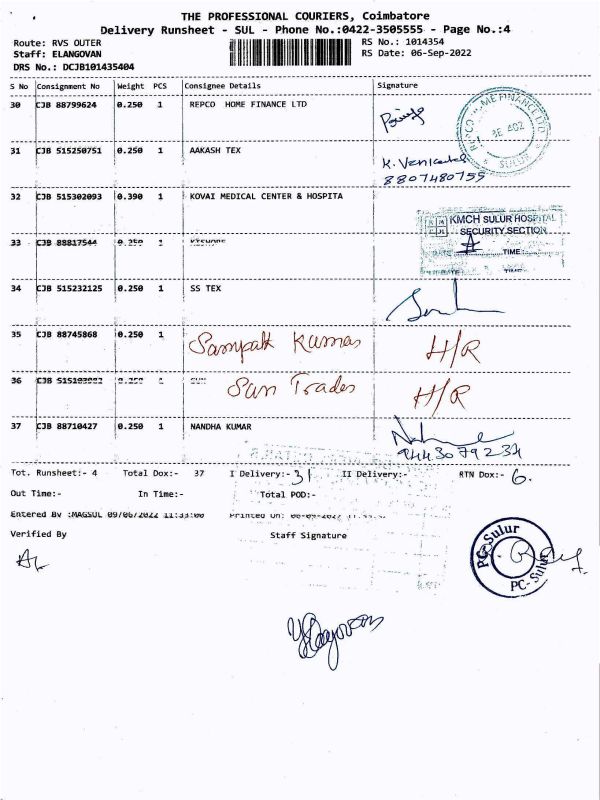 THE PROFESSIONAL COURIERS, Coimbatore
Delivery Runsheet - SUL - Phone No.:0422-3505555 - Page No.:4
Route: RVS OUTER RS No.: 1014354
Staff: ELANGOVAN RS Date: 06-Sep-2022
DRS No.: DCJB101435404
S No Consignment No Weight PCS Consignee Details Signature
30 CJB 88799624 0.250 1 REPCO HOME FINANCE LTD
REPCO HOME FINANCE LTD
SULUR
31 CJB 515250751 0.250 1 AAKASH TEX K. Venkatesh
8807480755
32 CJB 515302093 0.390 1 KOVAI MEDICAL CENTER & HOSPITA
KMCH SULUR HOSPITAL
SECURITY SECTION
DATE TIME:
33 CJB 88817544 0.250 1 KISHORE
34 CJB 515232125 0.250 1 SS TEX
35 CJB 88745868 0.250 1 Sampath Kumar H/R
36 CJB 1 Sun Trades H/R
37 CJB 88710427 0.250 1 NANDHA KUMAR
9443079234
Tot. Runsheet:- 4 Total Dox:- 37 I Delivery:- 31 II Delivery:- RTN Dox:- 6.
Out Time:- In Time:- Total POD:-
Entered By :MAGSUL 09/06/2022 11:33:00 Printed On:
Verified By Staff Signature
PC-Sulur
PC-Sulur
Elangovan